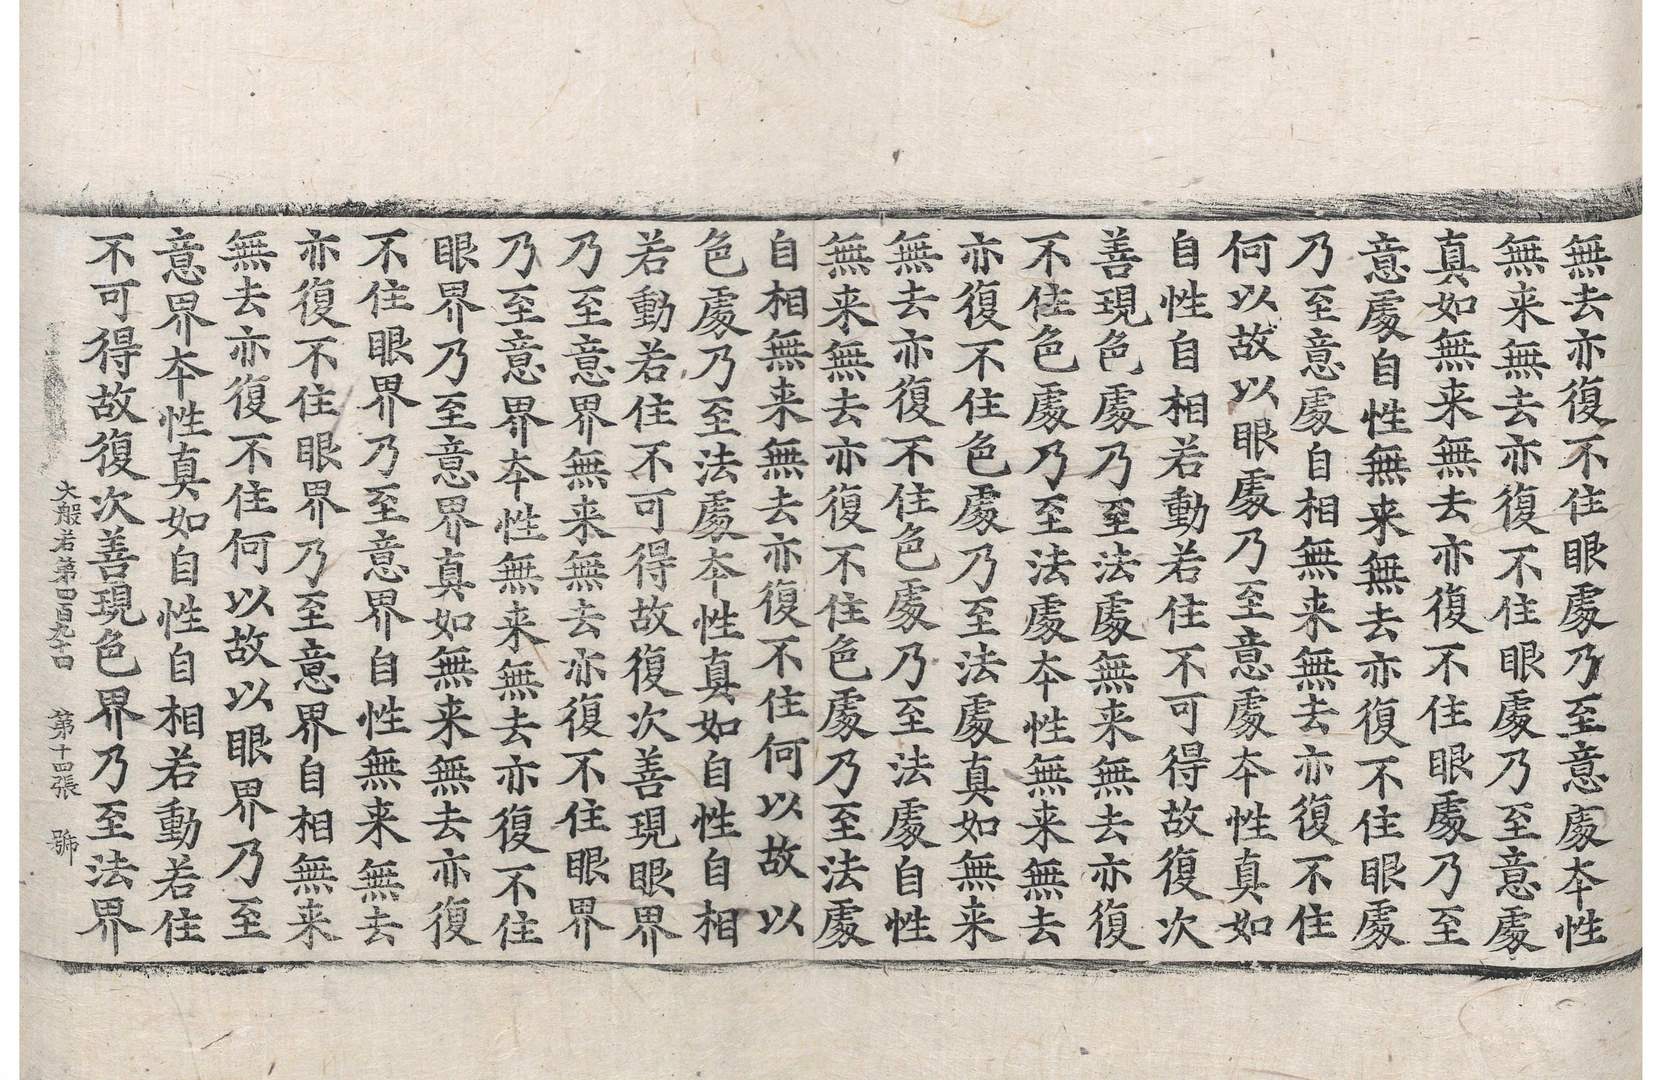 無去亦復不住眼處乃至意處夲性
無来無去亦復不住眼處乃至意處
真如無来無去亦復不住眼處乃至
意處自性無来無去亦復不住眼處
乃至意處自相無来無去亦復不住
何以故以眼處乃至意處夲性真如
自性自相若動若住不可得故復次
善現色處乃至法處無来無去亦復
不住色處乃至法處夲性無来無去
亦復不住色處乃至法處真如無来
無去亦復不住色處乃至法處自性
無来無去亦復不住色處乃至法處
自相無来無去亦復不住何以故以
色處乃至法處夲性真如自性自相
若動若住不可得故復次善現眼界
乃至意界無来無去亦復不住眼界
乃至意界夲性無来無去亦復不住
眼界乃至意界真如無来無去亦復
不住眼界乃至意界自性無来無去
亦復不住眼界乃至意界自相無来
無去亦復不住何以故以眼界乃至
意界夲性真如自性自相若動若住
不可得故復次善現色界乃至法界
大般若第四百九十四 第十四張 號